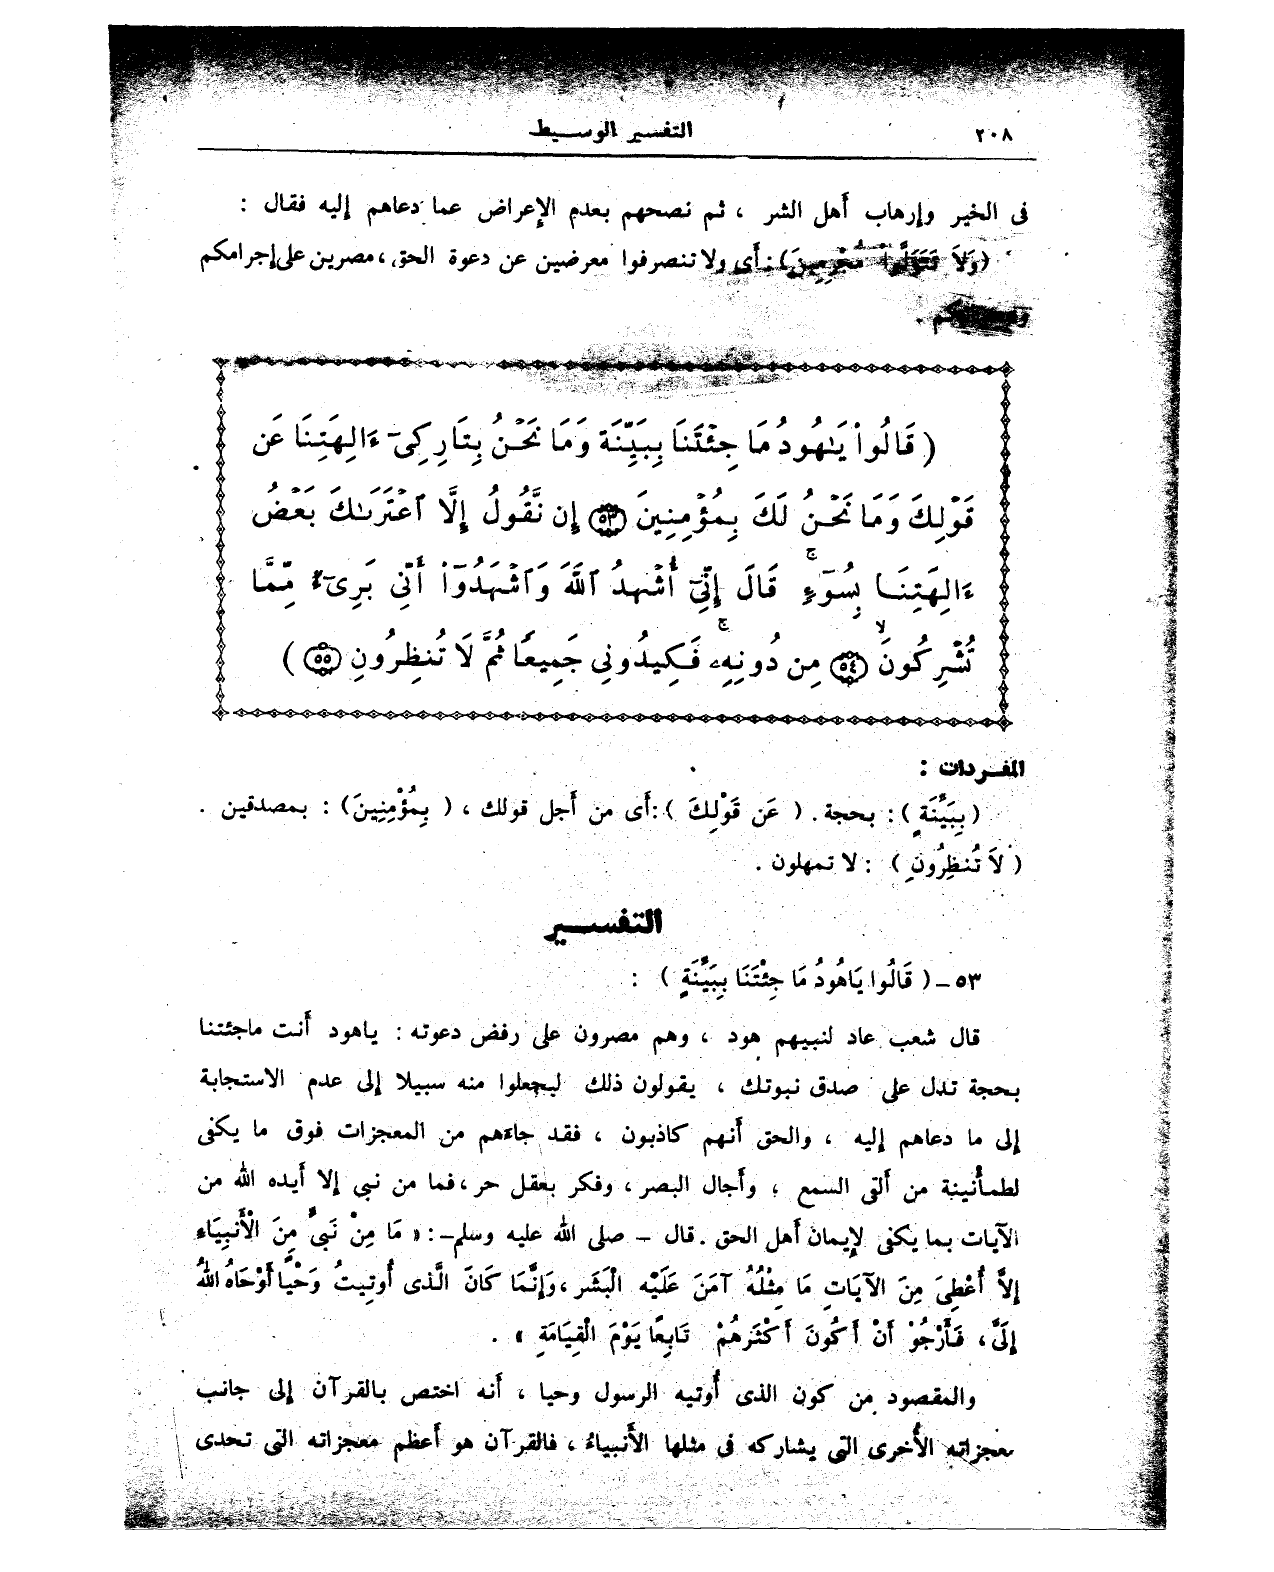 ٢٠٨
التفسير الوسيط
فى الخير وإرهاب أهل الشر ، ثم نصحهم بعدم الإعراض عما دعاهم إليه فقال :
(وَلَا تَتَوَلَّوْا مُجْرِمِينَ) : أى ولا تنصرفوا معرضين عن دعوة الحق ، مصرين على إجرامكم
( قَالُوا۟ يَـٰهُودُ مَا جِئْتَنَا بِبَيِّنَةٍ وَمَا نَحْنُ بِتَارِكِىٓ ءَالِهَتِنَا عَن
قَوْلِكَ وَمَا نَحْنُ لَكَ بِمُؤْمِنِينَ ٥٣ إِن نَّقُولُ إِلَّا ٱعْتَرَىٰكَ بَعْضُ
ءَالِهَتِنَا بِسُوٓءٍ ۚ قَالَ إِنِّىٓ أُشْهِدُ ٱللَّهَ وَٱشْهَدُوٓا۟ أَنِّى بَرِىٓءٌ مِّمَّا
تُشْرِكُونَ ۙ ٥٤ مِن دُونِهِۦ ۚ فَكِيدُونِى جَمِيعًا ثُمَّ لَا تُنظِرُونِ ٥٥ )
المفـردات :
( بِبَيِّنَةٍ ) : بحجة . ( عَن قَوْلِكَ ) : أى من أجل قولك ، ( بِمُؤْمِنِينَ ) : بمصدقين .
( لَا تُنظِرُونِ ) : لا تمهلون .
التفسـير
٥٣ – ( قَالُوا يَاهُودُ مَا جِئْتَنَا بِبَيِّنَةٍ ) :
قال شعب عاد لنبيهم هود ، وهم مصرون على رفض دعوته : ياهود أنت ماجئتنا
بحجة تدل على صدق نبوتك ، يقولون ذلك ليجعلوا منه سبيلا إلى عدم الاستجابة
إلى ما دعاهم إليه ، والحق أنهم كاذبون ، فقد جاءهم من المعجزات فوق ما يكفى
لطمأنينة من ألقى السمع ، وأجال البصر ، وفكر بعقل حر ، فما من نبي إلا أيده الله من
الآيات بما يكفى لإيمان أهل الحق . قال – صلى الله عليه وسلم – : « مَا مِنْ نَبِىٍّ مِنَ الْأَنْبِيَاءِ
إِلاَّ أُعْطِىَ مِنَ الآيَاتِ مَا مِثْلُهُ آمَنَ عَلَيْهِ الْبَشَر ، وَإِنَّمَا كَانَ الَّذى أُوتِيتُ وَحْيًا أَوْحَاهُ اللهُ
إِلَىَّ ، فَأَرْجُو أَنْ أَكُونَ أَكْثَرَهُمْ تَابِعًا يَوْمَ الْقِيَامَةِ » .
والمقصود من كون الذى أُوتيه الرسول وحيا ، أنه اختص بالقرآن إلى جانب
معجزاته الأُخرى التى يشاركه فى مثلها الأَنبياءُ ، فالقرآن هو أعظم معجزاته التى تحدى